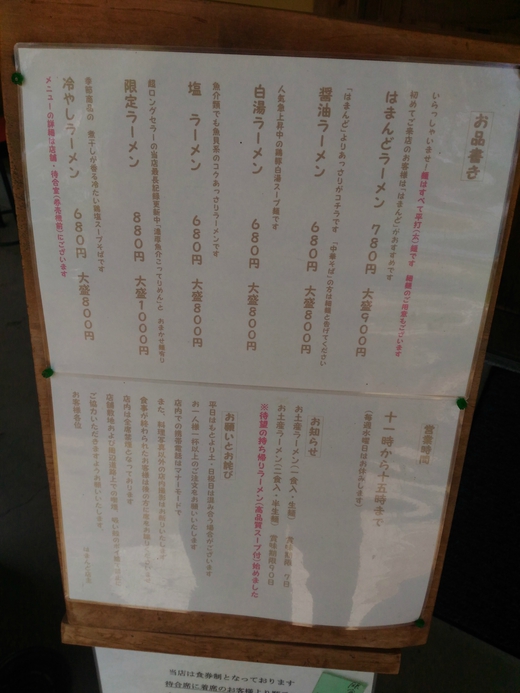 お品書き
いらっしゃいませ!麺はすべて平打(太)麺です 細麺のご用意もございます
初めてご来店のお客様は「はまんど」がおすすめです
はまんどラーメン 780円 大盛900円
「はまんど」よりあっさりがコチラです 「中華そば」の方は細麺と告げてください
醤油ラーメン 680円 大盛800円
人気急上昇中の鶏豚白湯スープ麺です
白湯ラーメン 680円 大盛800円
魚介類でも魚貝系のコクあっさりラーメンです
塩 ラーメン 680円 大盛800円
超ロングセラーの当店最長記録更新中「濃厚魚介こってりめん」と
限定ラーメン 880円 大盛1000円
季節商品の 煮干しが香る冷たい鶏塩スープそばです
冷やしラーメン 680円 大盛800円
メニューの詳細は店舗・待合室(券売機側)にございます
営業時間
十一時から十五時まで
(毎週水曜日はお休みします)
お知らせ
お土産ラーメン(一食入・生麺) 賞味期限 7日
お土産ラーメン(二食入・半生麺) 賞味期限90日
※待望の持ち帰りラーメン(高品質スープ付)始めました
お願いとお詫び
平日はもとより土・日祝日は混み合う場合がございます
お一人様一杯以上のご注文をお願いいたします
店内での携帯電話はマナーモードで
また、料理写真以外の店内撮影はお断りいたします
食事が終わられたお客様は後の方に席をお譲りください
店内は全席禁煙となっております
ご協力いただきますようお願いいたします
お客様各位
当店は食券制となっております
待合席に着席のお客様より